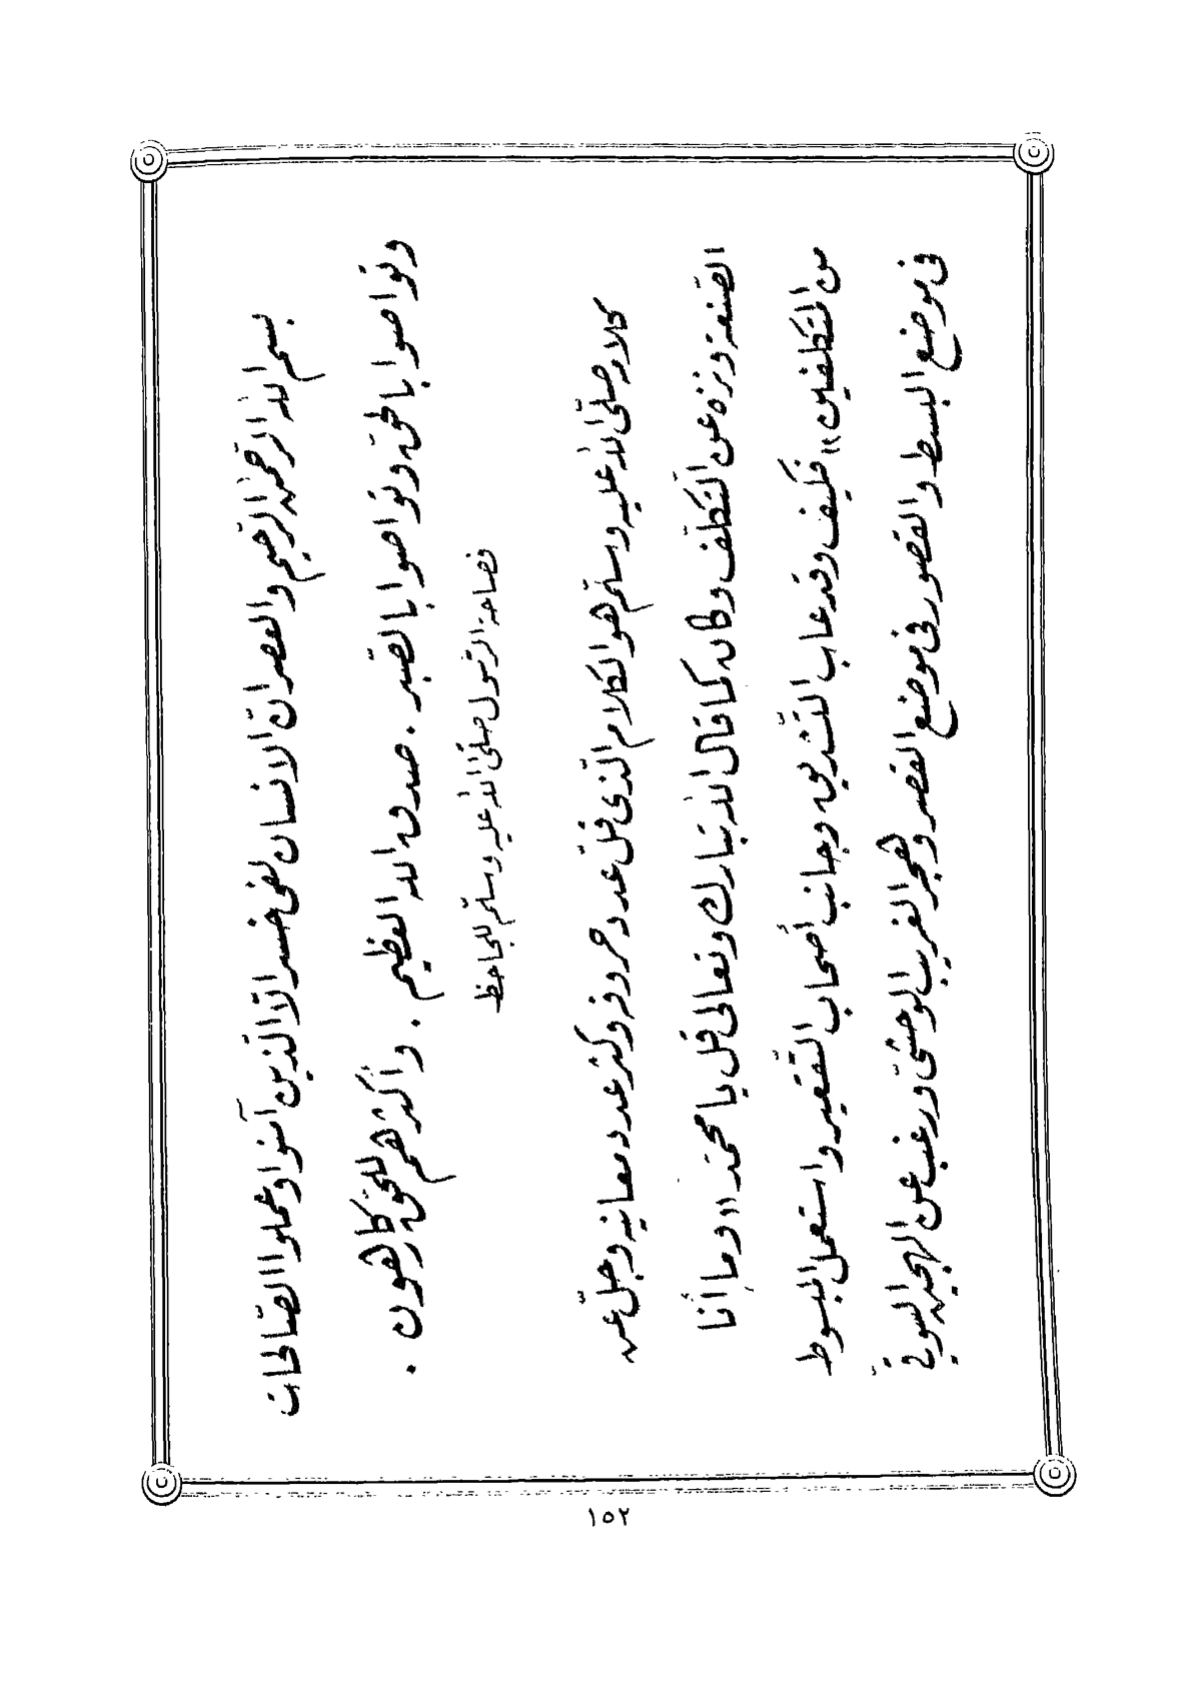 بسم الله الرّحمن الرّحيم والعصر انّ الانسان لفى خسر الاّ الّذين آمنوا وعملوا الصّالحات
وتواصوا بالحقّ وتواصوا بالصّبر . صدق الله العظيم . وأكثرهم للحقّ كارهون .
فصاحة الرّسول صلّى الله عليه وسلّم للجاحظ
كلامه صلّى الله عليه وسلّم هو الكلام الّذى قلّ عدد حروفه وكثر عدد معانيه وجلّ عن
الصّنعة ونزه عن التّكلّف وكان كما قال الله تبارك وتعالى قل يا محمّد ((وما أنا
من المتكلّفين)) فكيف وقد عاب التّشديق وجانب أصحاب التّقعير واستعمل المبسوط
فى موضع البسط والقصور فى موضع القصر وهجر الغريب الوحشىّ ورغب عن الهجين السوقىّ
١٥٢